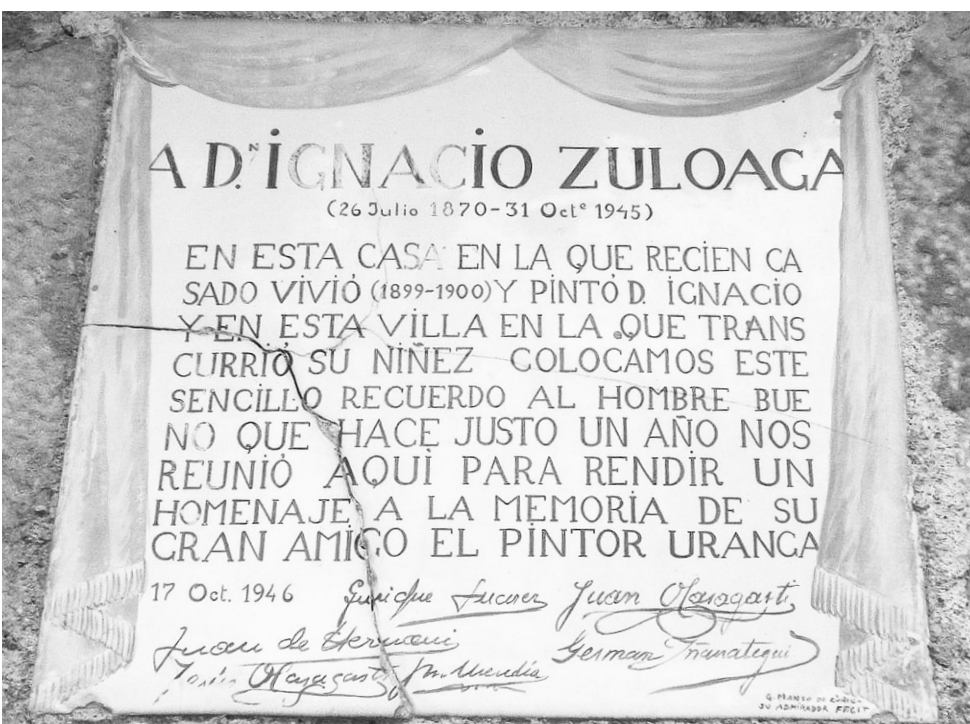 A D.N IGNACIO ZULOAGA
(26 Julio 1870-31 Octe 1945)
EN ESTA CASA EN LA QUE RECIEN CA
SADO VIVIÓ (1899-1900) Y PINTÓ D. IGNACIO
Y EN ESTA VILLA EN LA QUE TRANS
CURRIÓ SU NIÑEZ COLOCAMOS ESTE
SENCILLO RECUERDO AL HOMBRE BUE
NO QUE HACE JUSTO UN AÑO NOS
REUNIÓ AQUÍ PARA RENDIR UN
HOMENAJE A LA MEMORIA DE SU
GRAN AMIGO EL PINTOR URANGA
17 Oct. 1946 Enrique Suarez Juan Olazagasti
Juan de Hernani German Inanategui
Olazagasti
SU ADMIRADOR